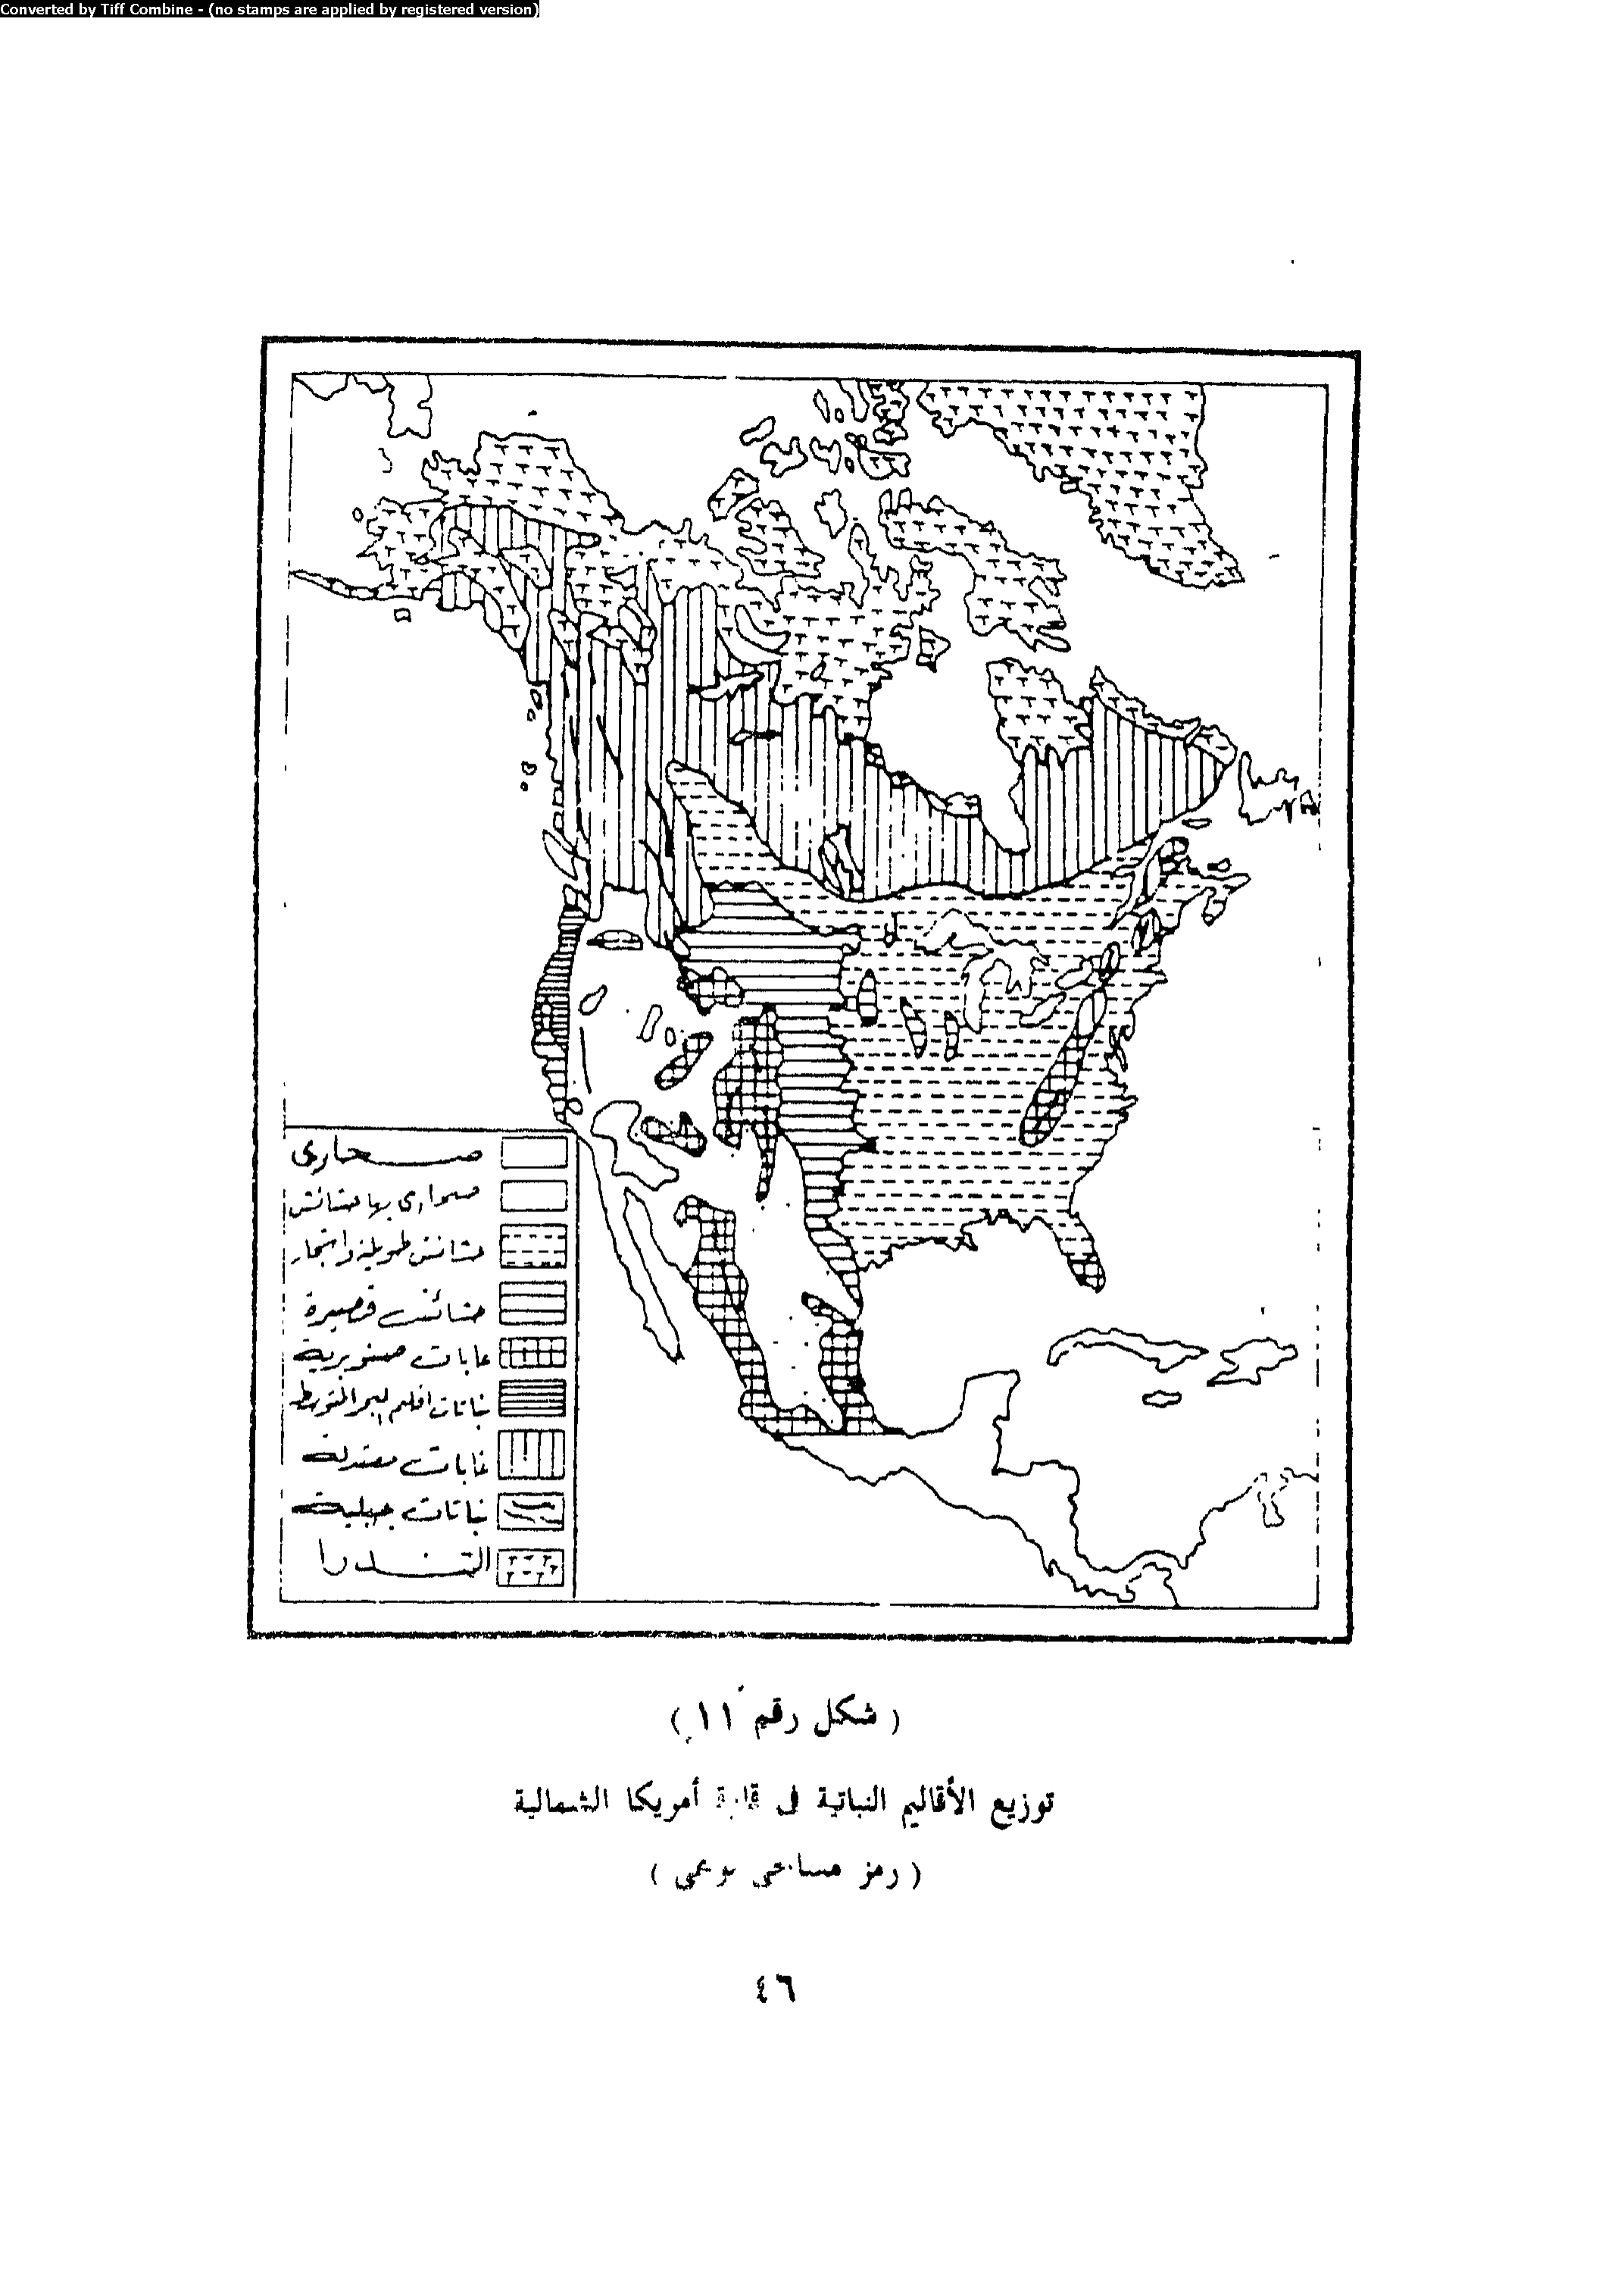 Converted by Tiff Combine - (no stamps are applied by registered version)
صحارى
صحارى بها حشائش
حشائش طويلة وأشجار
حشائش قصيرة
غابات صنوبرية
نباتات اقليم البحر المتوسط
غابات معتدلة
نباتات جبلية
التندرا
( شكل رقم ١١ )
توزيع الأقاليم النباتية فى قارة أمريكا الشمالية
( رمز مساحى نوعى )
٤٦